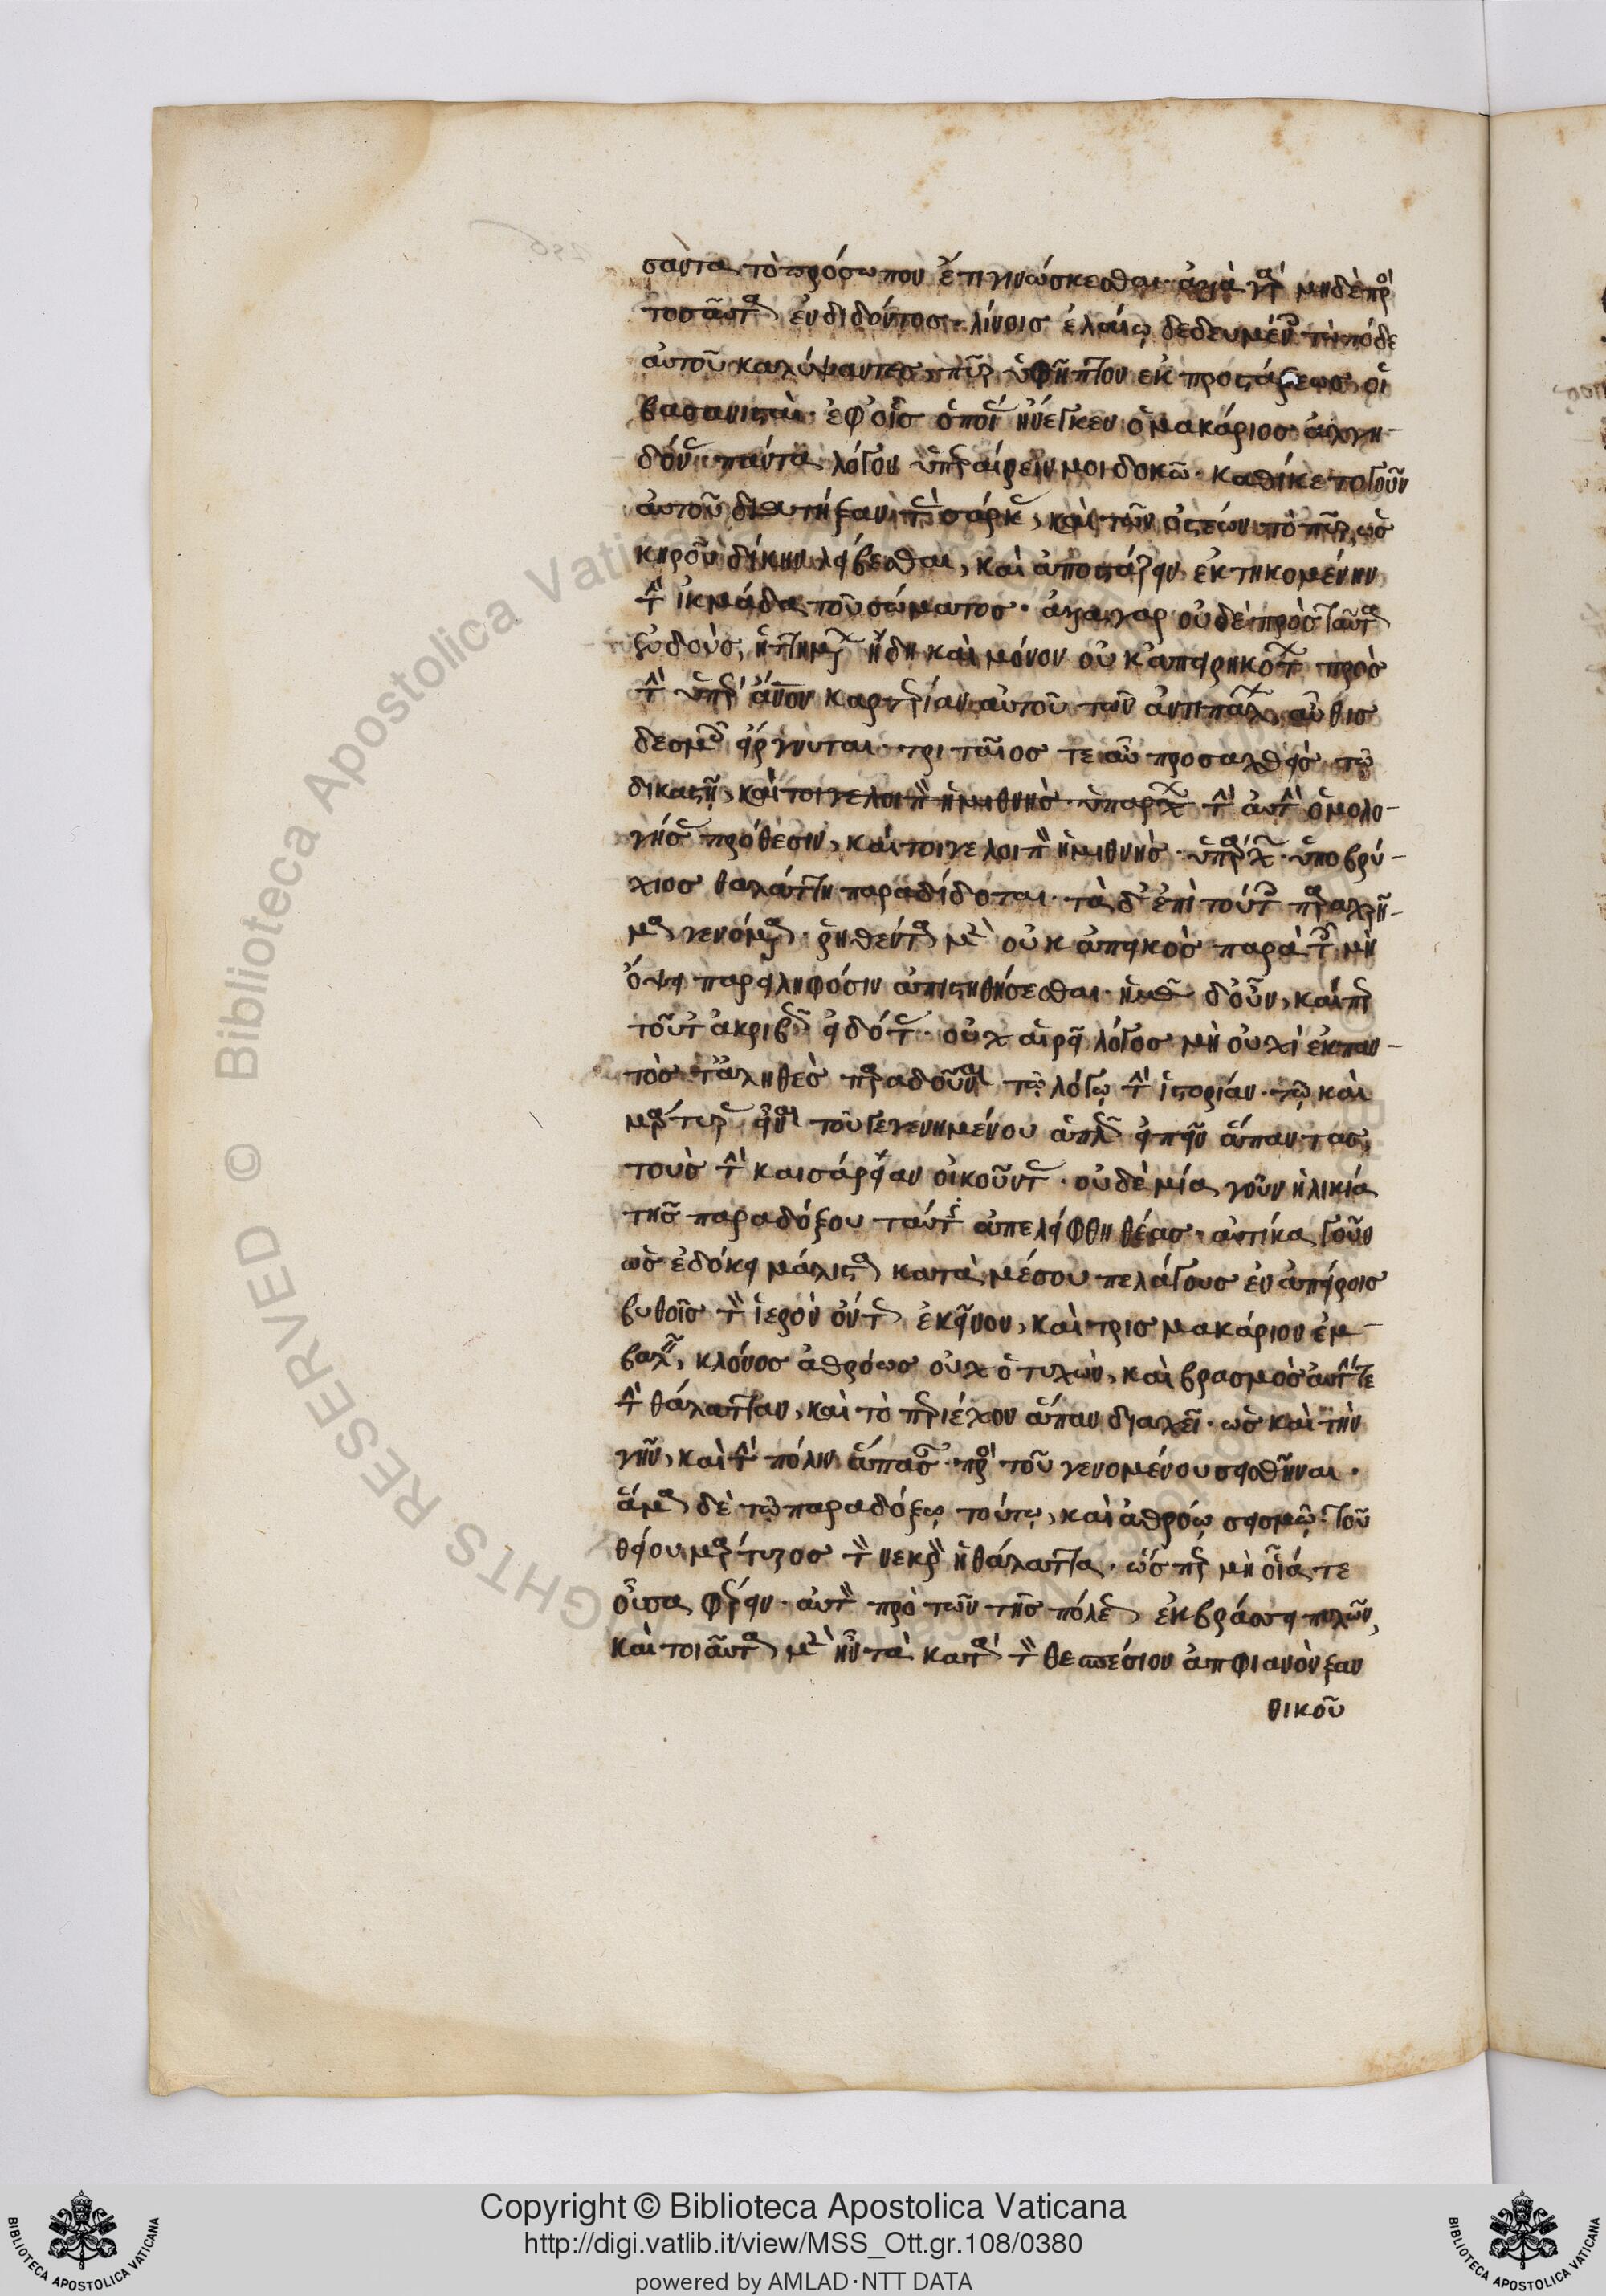 σαντα τὸ πρόσωπον ἔτι γινώσκεσθαι· ἀλλὰ γὰρ μηδὲ πρὸ
τοσαῦτα ἐνδιδόντος· λίνοις ἐλαίῳ δεδευμένοις τὼ πόδε
αὐτοῦ καλύψαντες, πῦρ ὑφῆπτον ἐκ προστάξεως οἱ
βασανισταί· ἐφ' οἷς ὁποίας ἤνεγκεν ὁ μακάριος ἀλγη-
δόνας πάντα λόγον ὑπεραίρειν μοι δοκῶ· καθίκετο γοῦν
αὐτοῦ διατῆξαν τὰς σάρκας, καὶ τῶν ὀστέων τὸ πῦρ, ὡς
κηροῦ δίκην λείβεσθαι, καὶ ἀποστάζειν ἐκτηκομένην
τὴν ἰκμάδα τοῦ σώματος· ἀλλὰ γὰρ οὐδὲ πρὸς ταῦτα
ἐνδούς, ἡττημένων ἤδη καὶ μόνον οὐκ ἀπειρηκότων πρὸς
τὴν ὑπὲρ ἄνον καρτερίαν αὐτοῦ τῶν ἀντιπάλων, αὖθις
δεσμοῖς εἴργνυται· τριταῖος τε αὖ προσαχθεὶς τῷ
δικαστῇ, καίτοι γε λοιπὸν ἡμιθνὴς ὑπάρχων τὴν αὐτὴν ὁμολο-
γήσας πρόθεσιν, καίτοι γε λοιπὸν ἡμιθνὴς ὑπάρχων· ὑποβρύ-
χιος θαλάττῃ παραδίδοται· τὰ δ' ἐπὶ τούτοις παραχρῆ-
μα γενόμενα· ῥηθέντα μὲν οὐκ ἀπεικὸς παρὰ τοῖς μὴ
ὄψει παρειληφόσιν ἀπιστηθήσεσθαι· ἡμᾶς δ' οὖν, καίπερ
τοῦτ' ἀκριβῶς εἰδότας· οὐχ αἱρεῖ λόγος μὴ οὐχὶ ἐκ παν-
τὸς τἀληθὲς παραδοῦναι τῷ λόγῳ τὴν ἱστορίαν· τῷ καὶ
μάρτυρας εἶναι τοῦ γεγενημένου ἁπλῶς εἰπεῖν ἅπαντας
τοὺς τὴν καισάρειαν οἰκοῦντας· οὐδὲ μία γοῦν ἡλικία
τῆς παραδόξου ταύτης ἀπελείφθη θέας· αὐτίκα γοῦν
ὡς ἐδόκει μάλιστα κατὰ μέσου πελάγους ἐν ἀπείροις
βυθοῖς τὸν ἱερὸν ὄντως ἐκεῖνον, καὶ τρισμακάριον ἐμ-
βαλεῖν, κλόνος ἀθρόως οὐχ ὁ τυχών, καὶ βρασμὸς αὐτήν τε
τὴν θάλατταν, καὶ τὸ περιέχον ἅπαν διαχεῖ· ὡς καὶ τὴν
γῆν, καὶ τὴν πόλιν ἅπασαν πρὸς τοῦ γενομένου σεισθῆναι·
ἅμα δὲ τῷ παραδόξῳ τούτῳ, καὶ ἀθρόῳ σεισμῷ· τοῦ
θείου μάρτυρος τὸν νεκρὸν ἡ θάλαττα· ὥσπερ μὴ οἵα τε
οὖσα φέρειν· αὐτὸν πρὸ τῶν τῆς πόλεως ἐκβράσσει πυλῶν,
καὶ τοιαῦτα μὲν ἦν τὰ κατὰ τὸν θεσπέσιον ἀπφιανὸν ξαν
θικοῦ
Copyright © Biblioteca Apostolica Vaticana
http://digi.vatlib.it/view/MSS_Ott.gr.108/0380
powered by AMLAD·NTT DATA